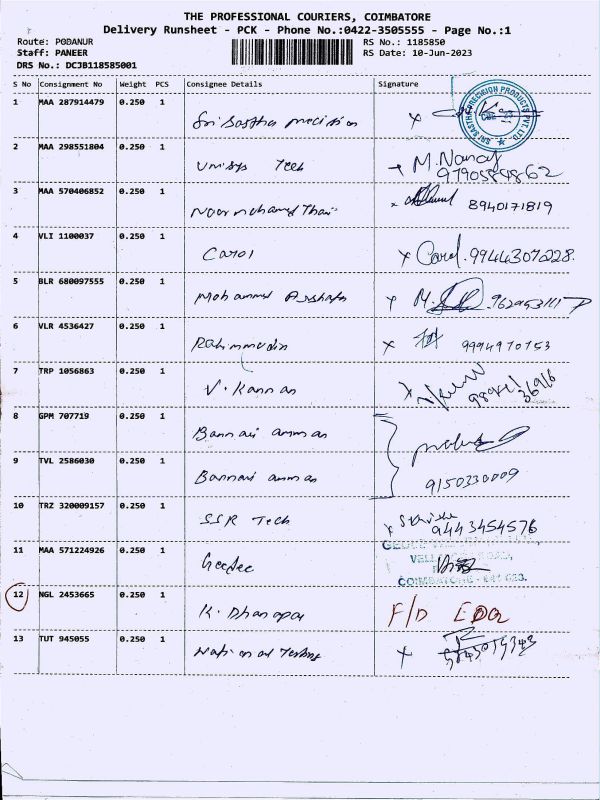 THE PROFESSIONAL COURIERS, COIMBATORE
Delivery Runsheet - PCK - Phone No.:0422-3505555 - Page No.:1
Route: PODANUR
Staff: PANEER
DRS No.: DCJB118585001
RS No.: 1185850
RS Date: 10-Jun-2023
S No Consignment No Weight PCS Consignee Details Signature
1 MAA 287914479 0.250 1 Sri Sastha precision x
SRI SASTHA PRECISION PRODUCTS PVT. LTD.
2 MAA 298551804 0.250 1 Unisys Tech
3 MAA 570406852 0.250 1 Noormohamed Thai x 8940171819
4 VLI 1100037 0.250 1 Carol x Carol. 9944307228
5 BLR 680097555 0.250 1 Mohammed Arshath x M.
6 VLR 4536427 0.250 1 Rahimmudin x 9994970753
7 TRP 1056863 0.250 1 V. Kannan x
8 GPM 707719 0.250 1 Bannari amman
9 TVL 2586030 0.250 1 Bannari amman 9150330009
10 TRZ 320009157 0.250 1 SSR Tech x 9443454576
11 MAA 571224926 0.250 1 Geedee
COIMBATORE
12 NGL 2453665 0.250 1 K. Dhanapal F/D
13 TUT 945055 0.250 1 National Testing x